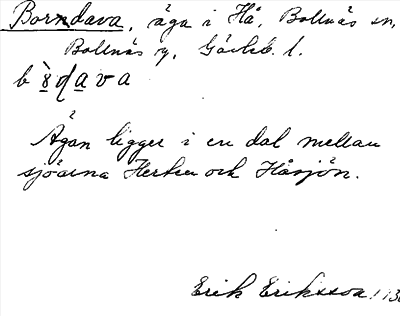 Borndava, äga i Hå, Bollnäs sn,
Bollnäs , Gävleb. l.
Ägan ligger i en dal mellan
sjöarna Herten och Håsjön.
Erik Eriksson